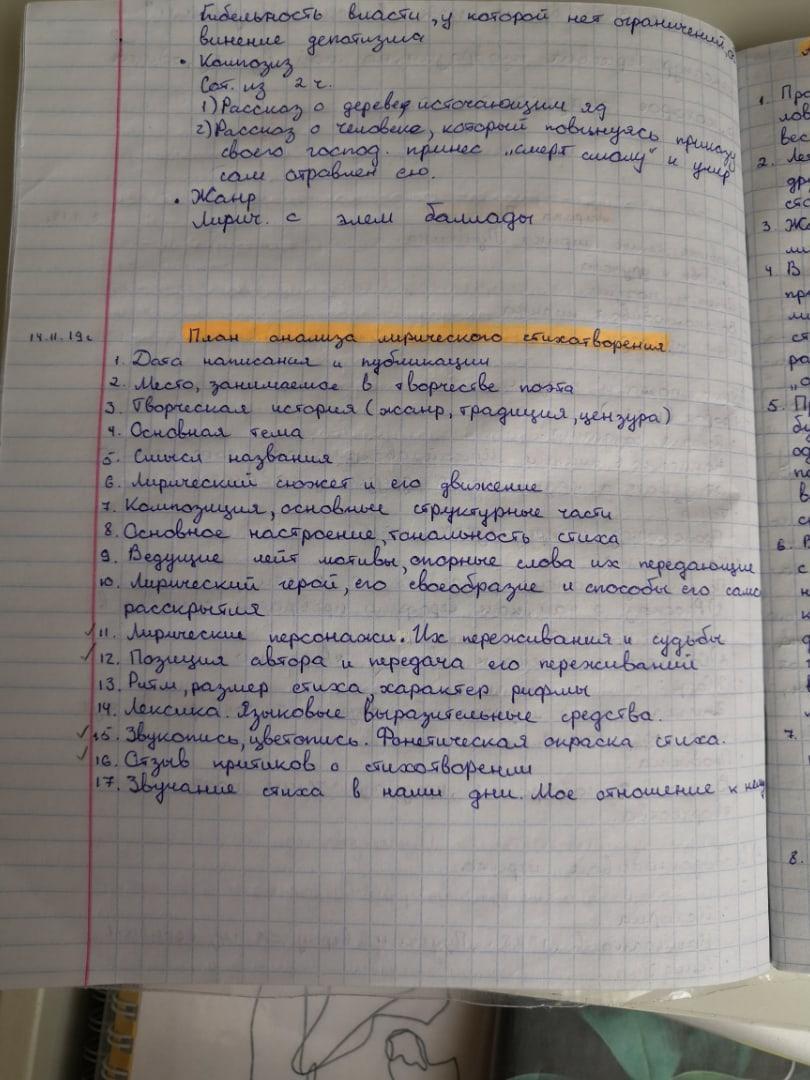 Гибельность власти, у которой нет ограничений,
винение депотизма
• Композиз
Сот. из 2 ч.
1) Рассказ о дереве, источающим яд
2) Рассказ о человеке, который повинуясь приказу
своего господ. принес „смерт смолу" и умир
сам отравлен ею.
• Жанр
Лирич. с элем баллады
14.11.19г
План анализа лирического стихотворения.
1. Дата написания и публикации
2. Место, занимаемое в творчестве поэта
3. Творческая история (жанр, традиция, цензура)
4. Основная тема
5. Смысл названия
6. Лирический сюжет и его движение
7. Композиция, основные структурные части
8. Основное настроение, тональность стиха
9. Ведущие лейт мотивы, опорные слова их передающие
10. Лирический герой, его своеобразие и способы его само
расскрытия
✓11. Лирические персонажи. Их переживания и судьбы
✓12. Позиция автора и передача его переживаний
13. Ритм, размер стиха, характер рифмы
14. Лексика. Языковые выразительные средства.
✓15. Звукопись, цветопись. Фонетическая окраска стиха.
✓16. Отзыв критиков о стихотворении
17. Звучание стиха в наши дни. Мое отношение к нему
1. Про
лов
вес
2. Ле
дру
сто
3 Жа
ли
4 В
пр
ли
ст
ра
5. Пр
бу
од
по
в
6. В
с
н
к
7.
8.